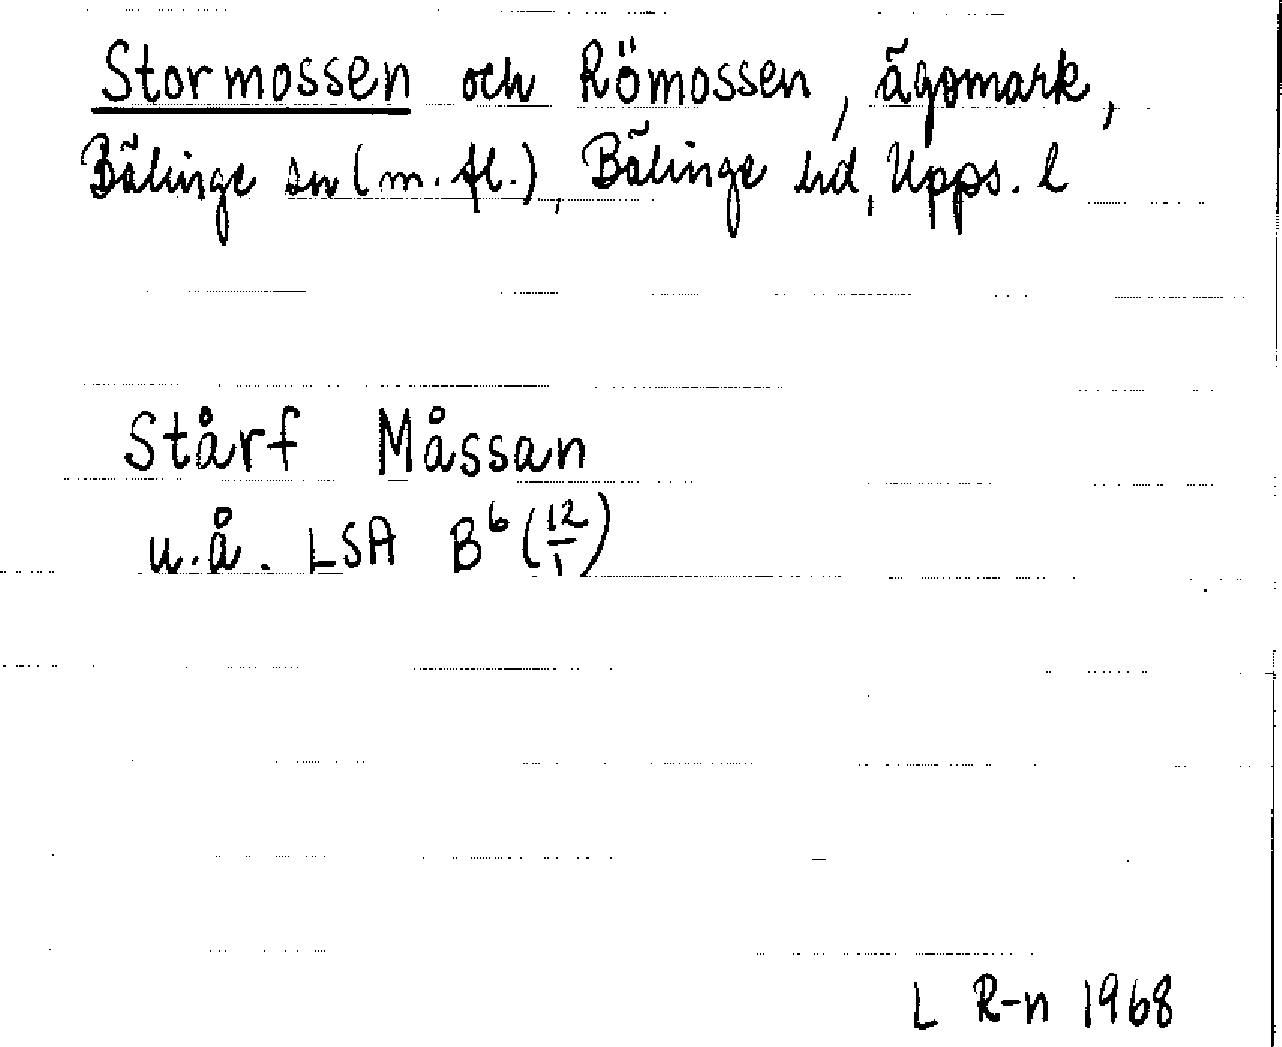 Stormossen och Römossen, ägomark,
Bälinge sn (m. fl.), Bälinge hd, Upps. l
Stårf Måssan
u.å. LSA B⁶ (12/1)
L R-n 1968